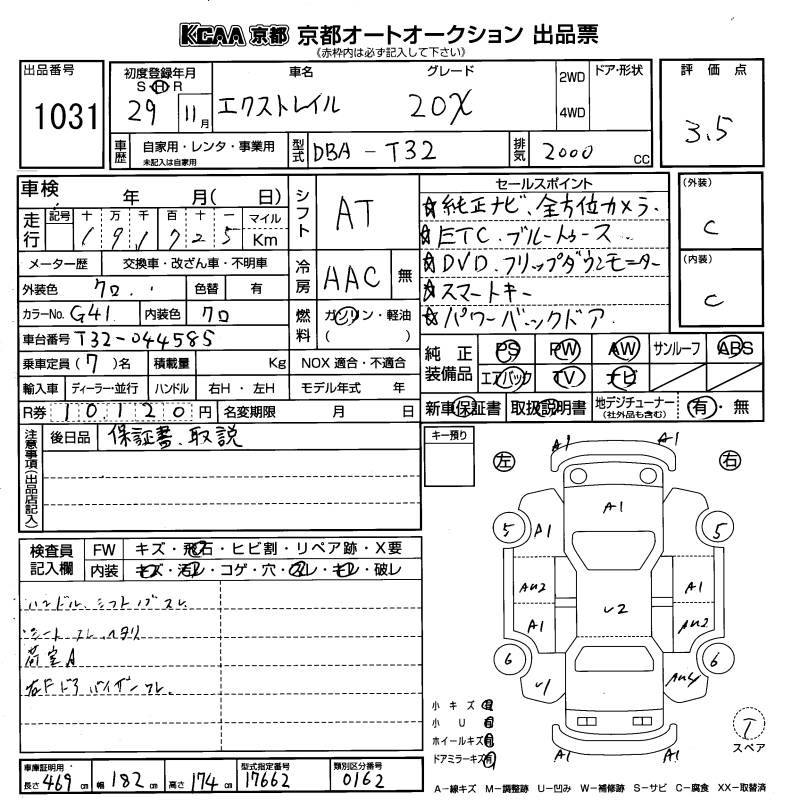 KCAA 京都 京都オートオークション 出品票
《赤枠内は必ず記入して下さい》
出品番号 1031
初度登録年月 S H R 29 11月
車名 エクストレイル
グレード 20X
2WD 4WD
ドア・形状
評価点 3.5
車歴 自家用・レンタ・事業用
未記入は自家用
型式 DBA-T32
排気 2000 cc
車検 年 月( 日)
走行 記号 十 万 千 百 十 一 マイル
191725 Km
メーター歴 交換車・改ざん車・不明車
外装色 クロ 色替 有
カラーNo. G41 内装色 クロ
車台番号 T32-044585
乗車定員(7)名 積載量 Kg NOX 適合・不適合
輸入車 ディーラー・並行 ハンドル 右H・左H モデル年式 年
R券 10120円 名変期限 月 日
シフト AT
冷房 AAC 無
燃料 ガソリン・軽油
( )
セールスポイント
☆純正ナビ、全方位カメラ.
☆ETC.ブルートゥース
☆DVD.フリップダウンモニター
☆スマートキー
☆パワーバックドア.
(外装) C
(内装) C
純正装備品 PS PW AW サンルーフ ABS
エアバック TV ナビ
新車保証書 取扱説明書 地デジチューナー(社外品も含む) 有・無
注意事項(出品店記入)
後日品 保証書、取説
キー預り
検査員記入欄
FW キズ・飛石・ヒビ割・リペア跡・X要
内装 キズ・汚レ・コゲ・穴・スレ・モレ・破レ
ハンドル、シフトノブスレ
シートスレ、ヘタリ
荷室A
右Fドアバイザーワレ.
左 右
A1 A1
A1
5 A1 5
AU2 A1
U2
A1 AU2
6 U1 AU4 6
A1 A1
小キズ 有
小U 有
ホイールキズ 有
ドアミラーキズ 有
T
スペア
車庫証明用 長さ 469cm 幅 182cm 高さ 174cm
型式指定番号 17662
類別区分番号 0162
A-線キズ M-調整跡 U-凹み W-補修跡 S-サビ C-腐食 XX-取替済